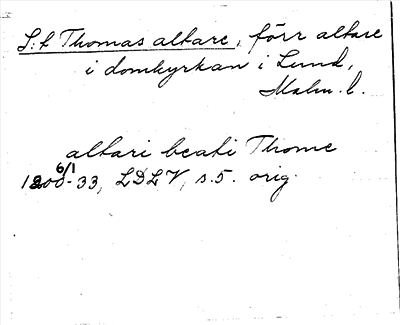 S:t Thomas altare, förr altare
i domkyrkan i Lund,
Malm. l.
altari beati Thome
6/1
1200-33, LDLV, s.5. orig.